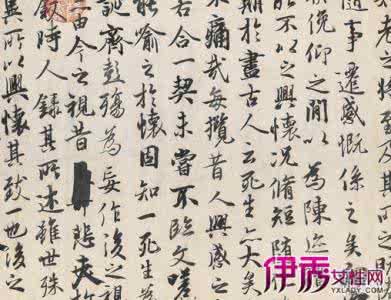 老之將至及其
隨事遷感慨係之矣
俛仰之間以為陳迹
能不以之興懷況脩短隨
期於盡古人云死生亦大矣
痛哉每攬昔人興感之
合一契未嘗不臨文嗟
能喻之於懷固知一死生為
誕齊彭殤為妄作後之視
由今之視昔悲夫
敘時人錄其所述雖世殊
異所以興懷其致一也後之
伊秀女性网
YXlady.com